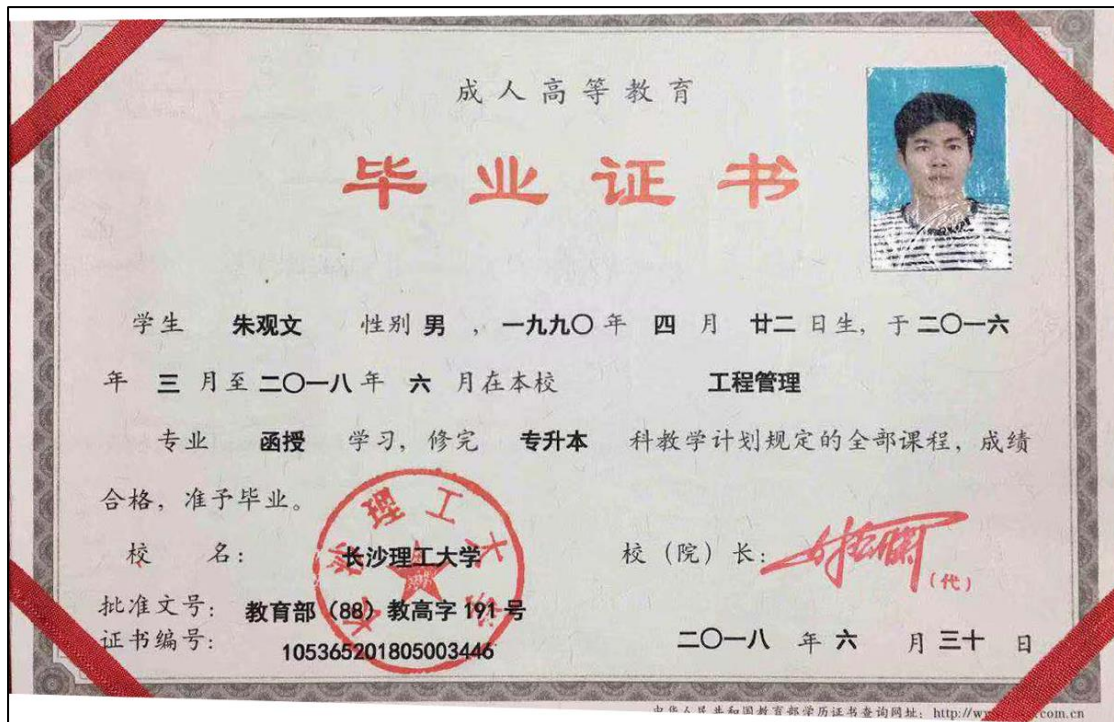 成人高等教育
毕业证书
学生 朱观文 性别 男 ，一九九〇年 四 月 廿二 日生，于二〇一六
年 三 月至二〇一八年 六 月在本校 工程管理
专业 函授 学习，修完 专升本 科教学计划规定的全部课程，成绩
合格，准予毕业。
校 名： 长沙理工大学 校（院）长：
(代)
长沙理工大学
批准文号： 教育部（88）教高字 191 号
证书编号： 105365201805003446
二〇一八 年 六 月 三十 日
中华人民共和国教育部学历证书查询网址：http://w com.cn